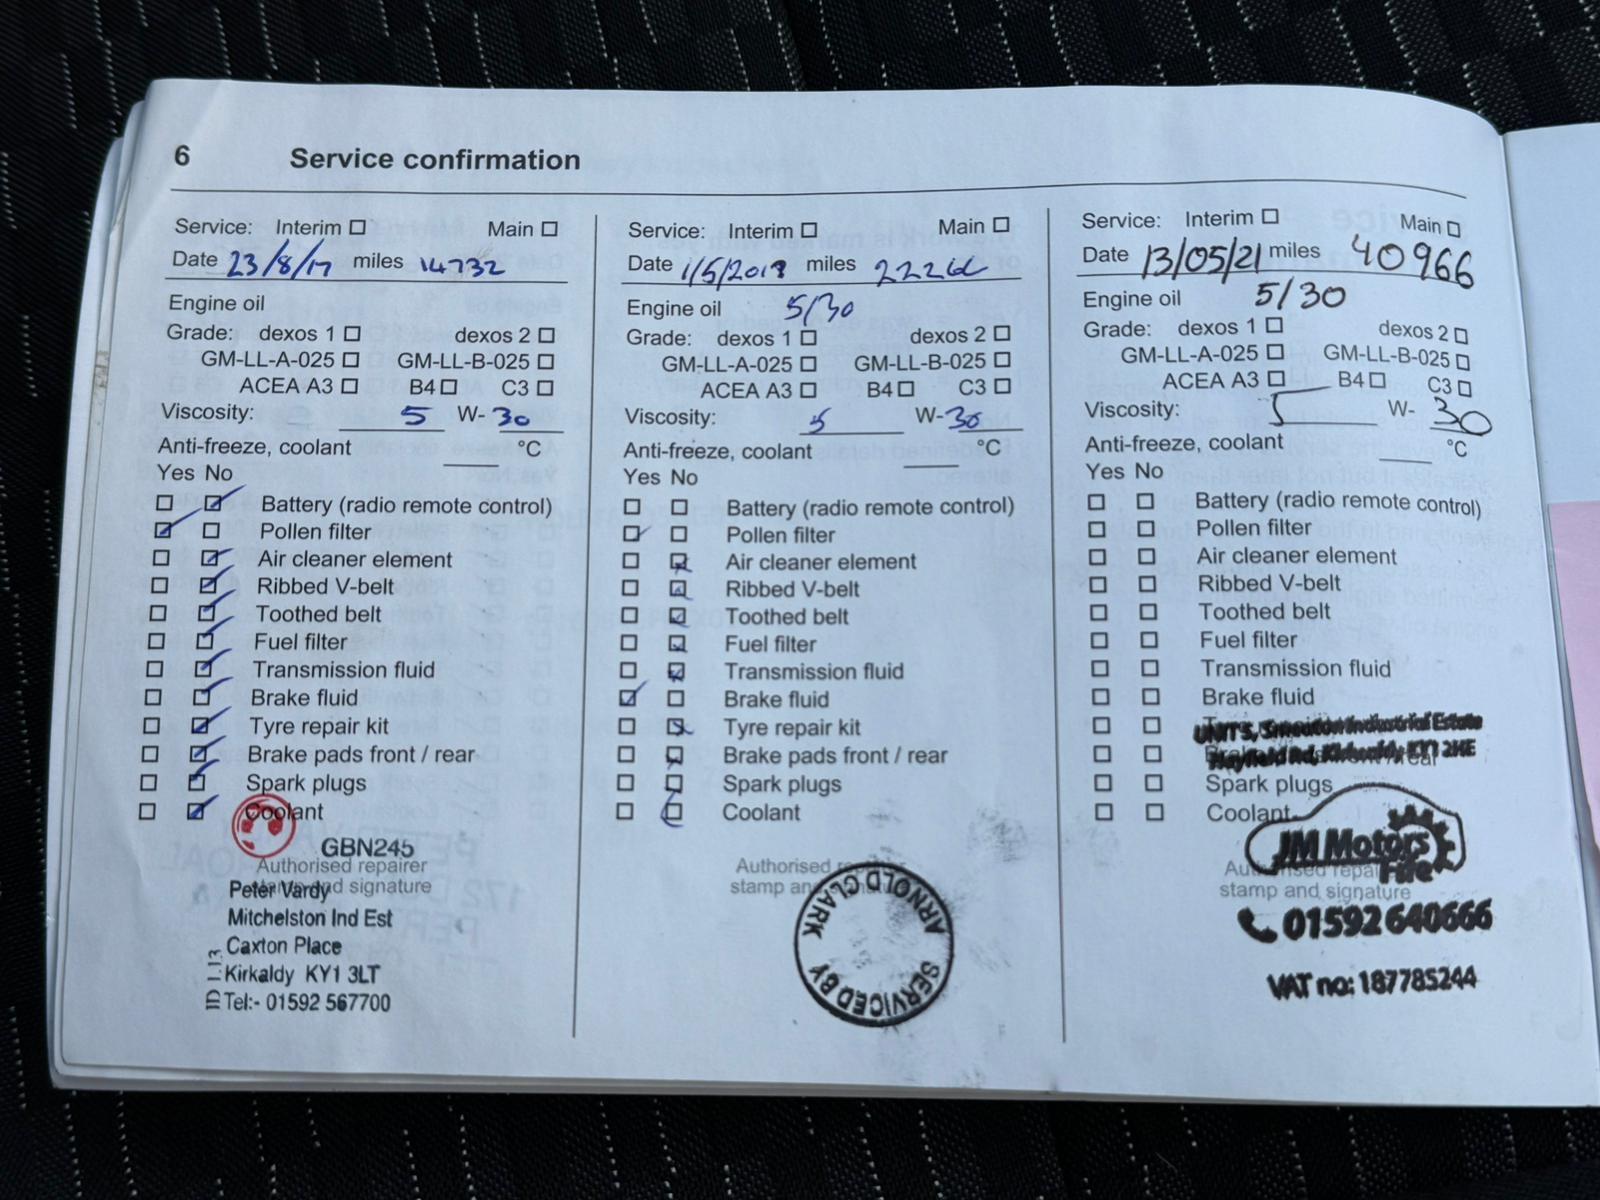 6 Service confirmation
Service: Interim ☐ Main ☐
Date 23/8/17 miles 14732
Engine oil
Grade: dexos 1 ☐ dexos 2 ☐
GM-LL-A-025 ☐ GM-LL-B-025 ☐
ACEA A3 ☐ B4 ☐ C3 ☐
Viscosity: 5 W- 30
Anti-freeze, coolant °C
Yes No
Battery (radio remote control)
Pollen filter
Air cleaner element
Ribbed V-belt
Toothed belt
Fuel filter
Transmission fluid
Brake fluid
Tyre repair kit
Brake pads front / rear
Spark plugs
Coolant
GBN245
Authorised repairer
stamp and signature
Peter Vardy
Mitchelston Ind Est
Caxton Place
Kirkaldy KY1 3LT
Tel:- 01592 567700
Service: Interim ☐ Main ☐
Date 1/5/2018 miles
Engine oil 5/30
Grade: dexos 1 ☐ dexos 2 ☐
GM-LL-A-025 ☐ GM-LL-B-025 ☐
ACEA A3 ☐ B4 ☐ C3 ☐
Viscosity: 5 W- 30
Anti-freeze, coolant °C
Yes No
Battery (radio remote control)
Pollen filter
Air cleaner element
Ribbed V-belt
Toothed belt
Fuel filter
Transmission fluid
Brake fluid
Tyre repair kit
Brake pads front / rear
Spark plugs
Coolant
Authorised repairer
stamp and signature
SERVICED BY
ARNOLD CLARK
Service: Interim ☐ Main ☐
Date 13/05/21 miles 40966
Engine oil 5/30
Grade: dexos 1 ☐ dexos 2 ☐
GM-LL-A-025 ☐ GM-LL-B-025 ☐
ACEA A3 ☐ B4 ☐ C3 ☐
Viscosity: 5 W- 30
Anti-freeze, coolant °C
Yes No
Battery (radio remote control)
Pollen filter
Air cleaner element
Ribbed V-belt
Toothed belt
Fuel filter
Transmission fluid
Brake fluid
UNIT 5, Smeaton Industrial Estate
Hayfield Rd, Kirkcaldy, KY1 2HE
Spark plugs
Coolant
JM Motors
Fife
Authorised repairer
stamp and signature
01592 640666
VAT no: 187785244